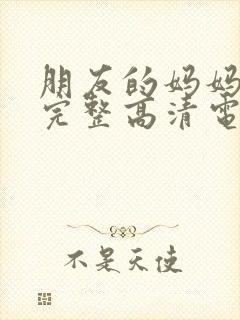 朋友的妈妈
完整高清電
不是天使